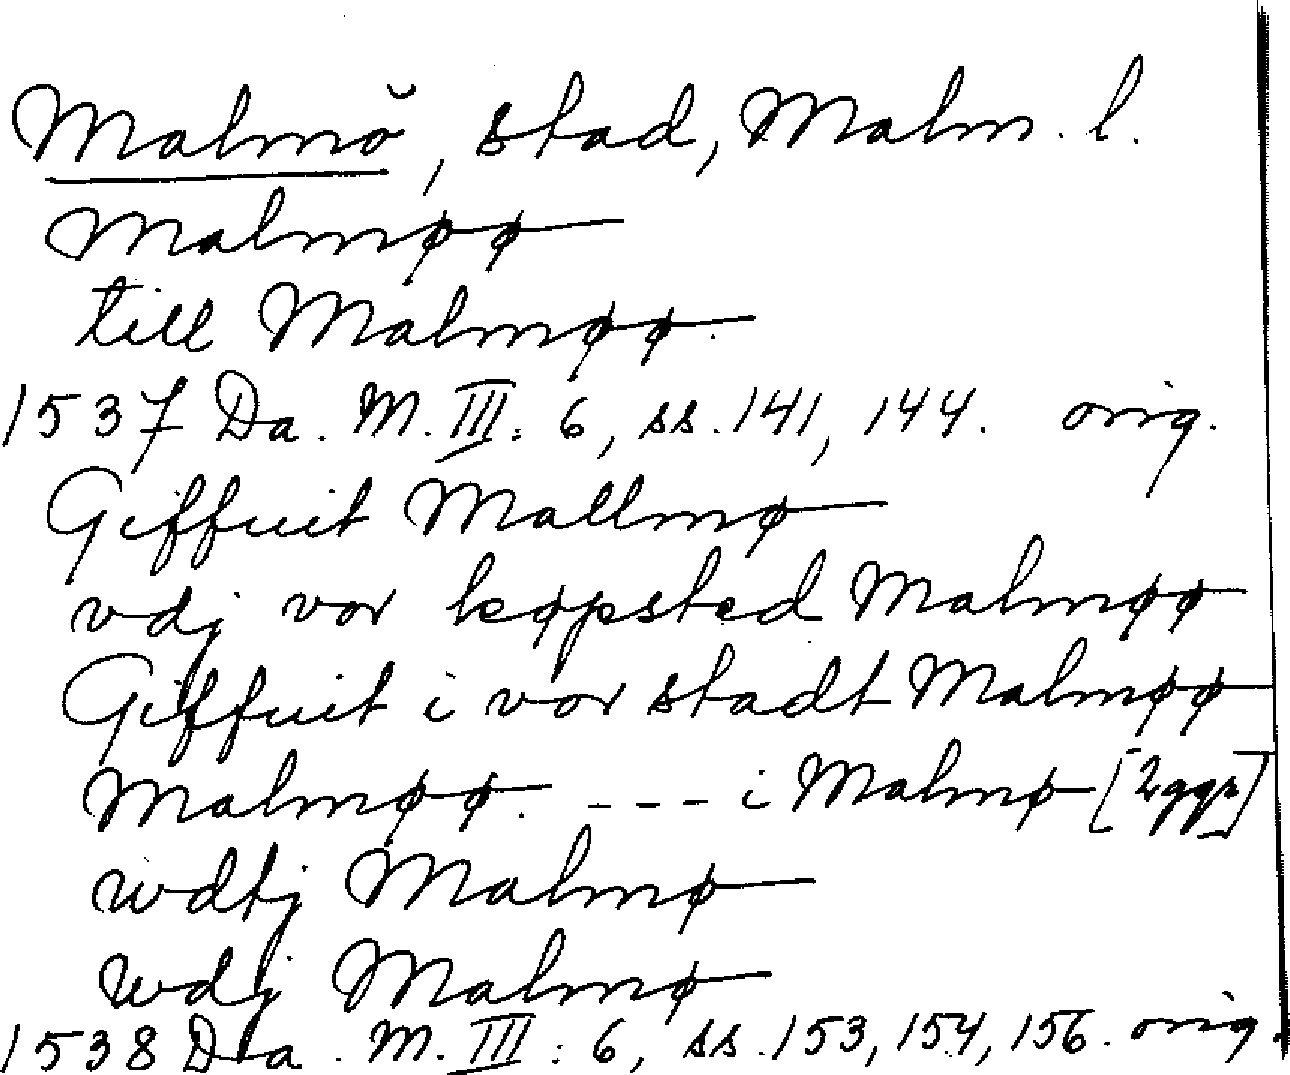 Malmö, stad, Malm. l.
Malmøø
till Malmøø.
1537 Da. M. III: 6, ss. 141, 144. orig.
Giffuit Mallmø
vdj vor køpsted Malmøø
Giffuit i vor stadt Malmøø
Malmøø. - - - i Malmø [2 ggr]
wdtj Malmø
wdj Malmø
1538 Da. M. III: 6, ss. 153, 154, 156. orig.